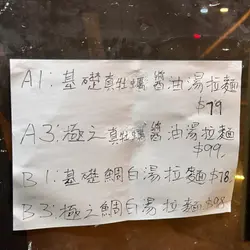 A1:基礎真牡蠣醬油湯拉麵
$79
A3:極之真牡蠣醬油湯拉麵
$99.
B1:基礎鯛白湯拉麵$78.
B3:極之鯛白湯拉麵$98